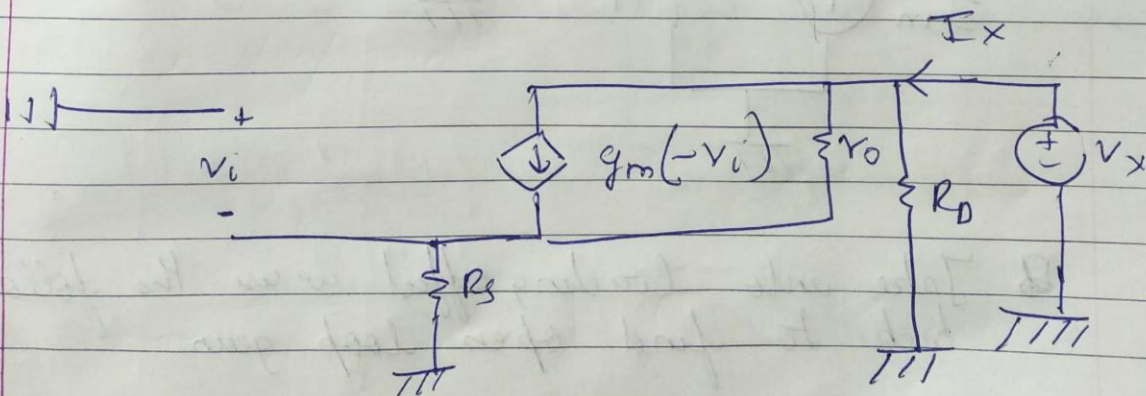 Ix
+
vi
-
gm(-vi)
ro
RD
+
-
vx
Rs